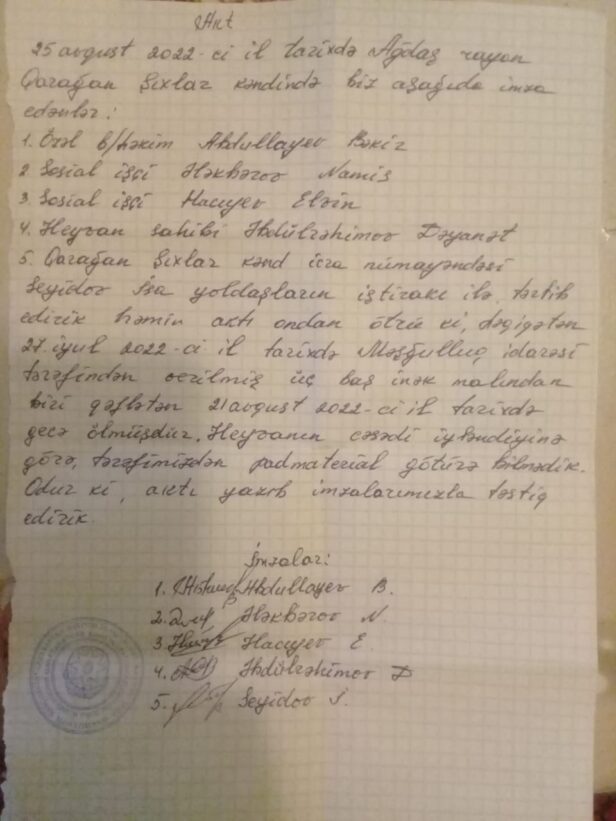 Akt
25 avqust 2022-ci il tarixdə Ağdaş rayon
Qarağan Şıxlar kəndində biz aşağıda imza
edənlər:
1. Özəl b/həkim Abdullayev Bəkir
2. Sosial işçi Ələkbərov Namiş
3. Sosial işçi Hacıyev Elvin
4. Heyvan sahibi Əbdülrəhimov Dəyanət
5. Qarağan Şıxlar kənd icra nümayəndəsi
Seyidov İsa yoldaşların iştirakı ilə tərtib
edirik həmin aktı ondan ötrü ki, həqiqətən
27 iyul 2022-ci il tarixdə Məşğulluq idarəsi
tərəfindən verilmiş üç baş inək malından
biri qəflətən 21 avqust 2022-ci il tarixdə
gecə ölmüşdür. Heyvanın cəsədi iyləndiyinə
görə, tərəfimizdən padmaterial götürə bilmədik.
Odur ki, aktı yazıb imzalarımızla təstiq
edirik.
İmzalar:
1. Abdullayev B.
2. Ələkbərov N.
3. Hacıyev E.
4. Əbdülrəhimov D
5. Seyidov İ.